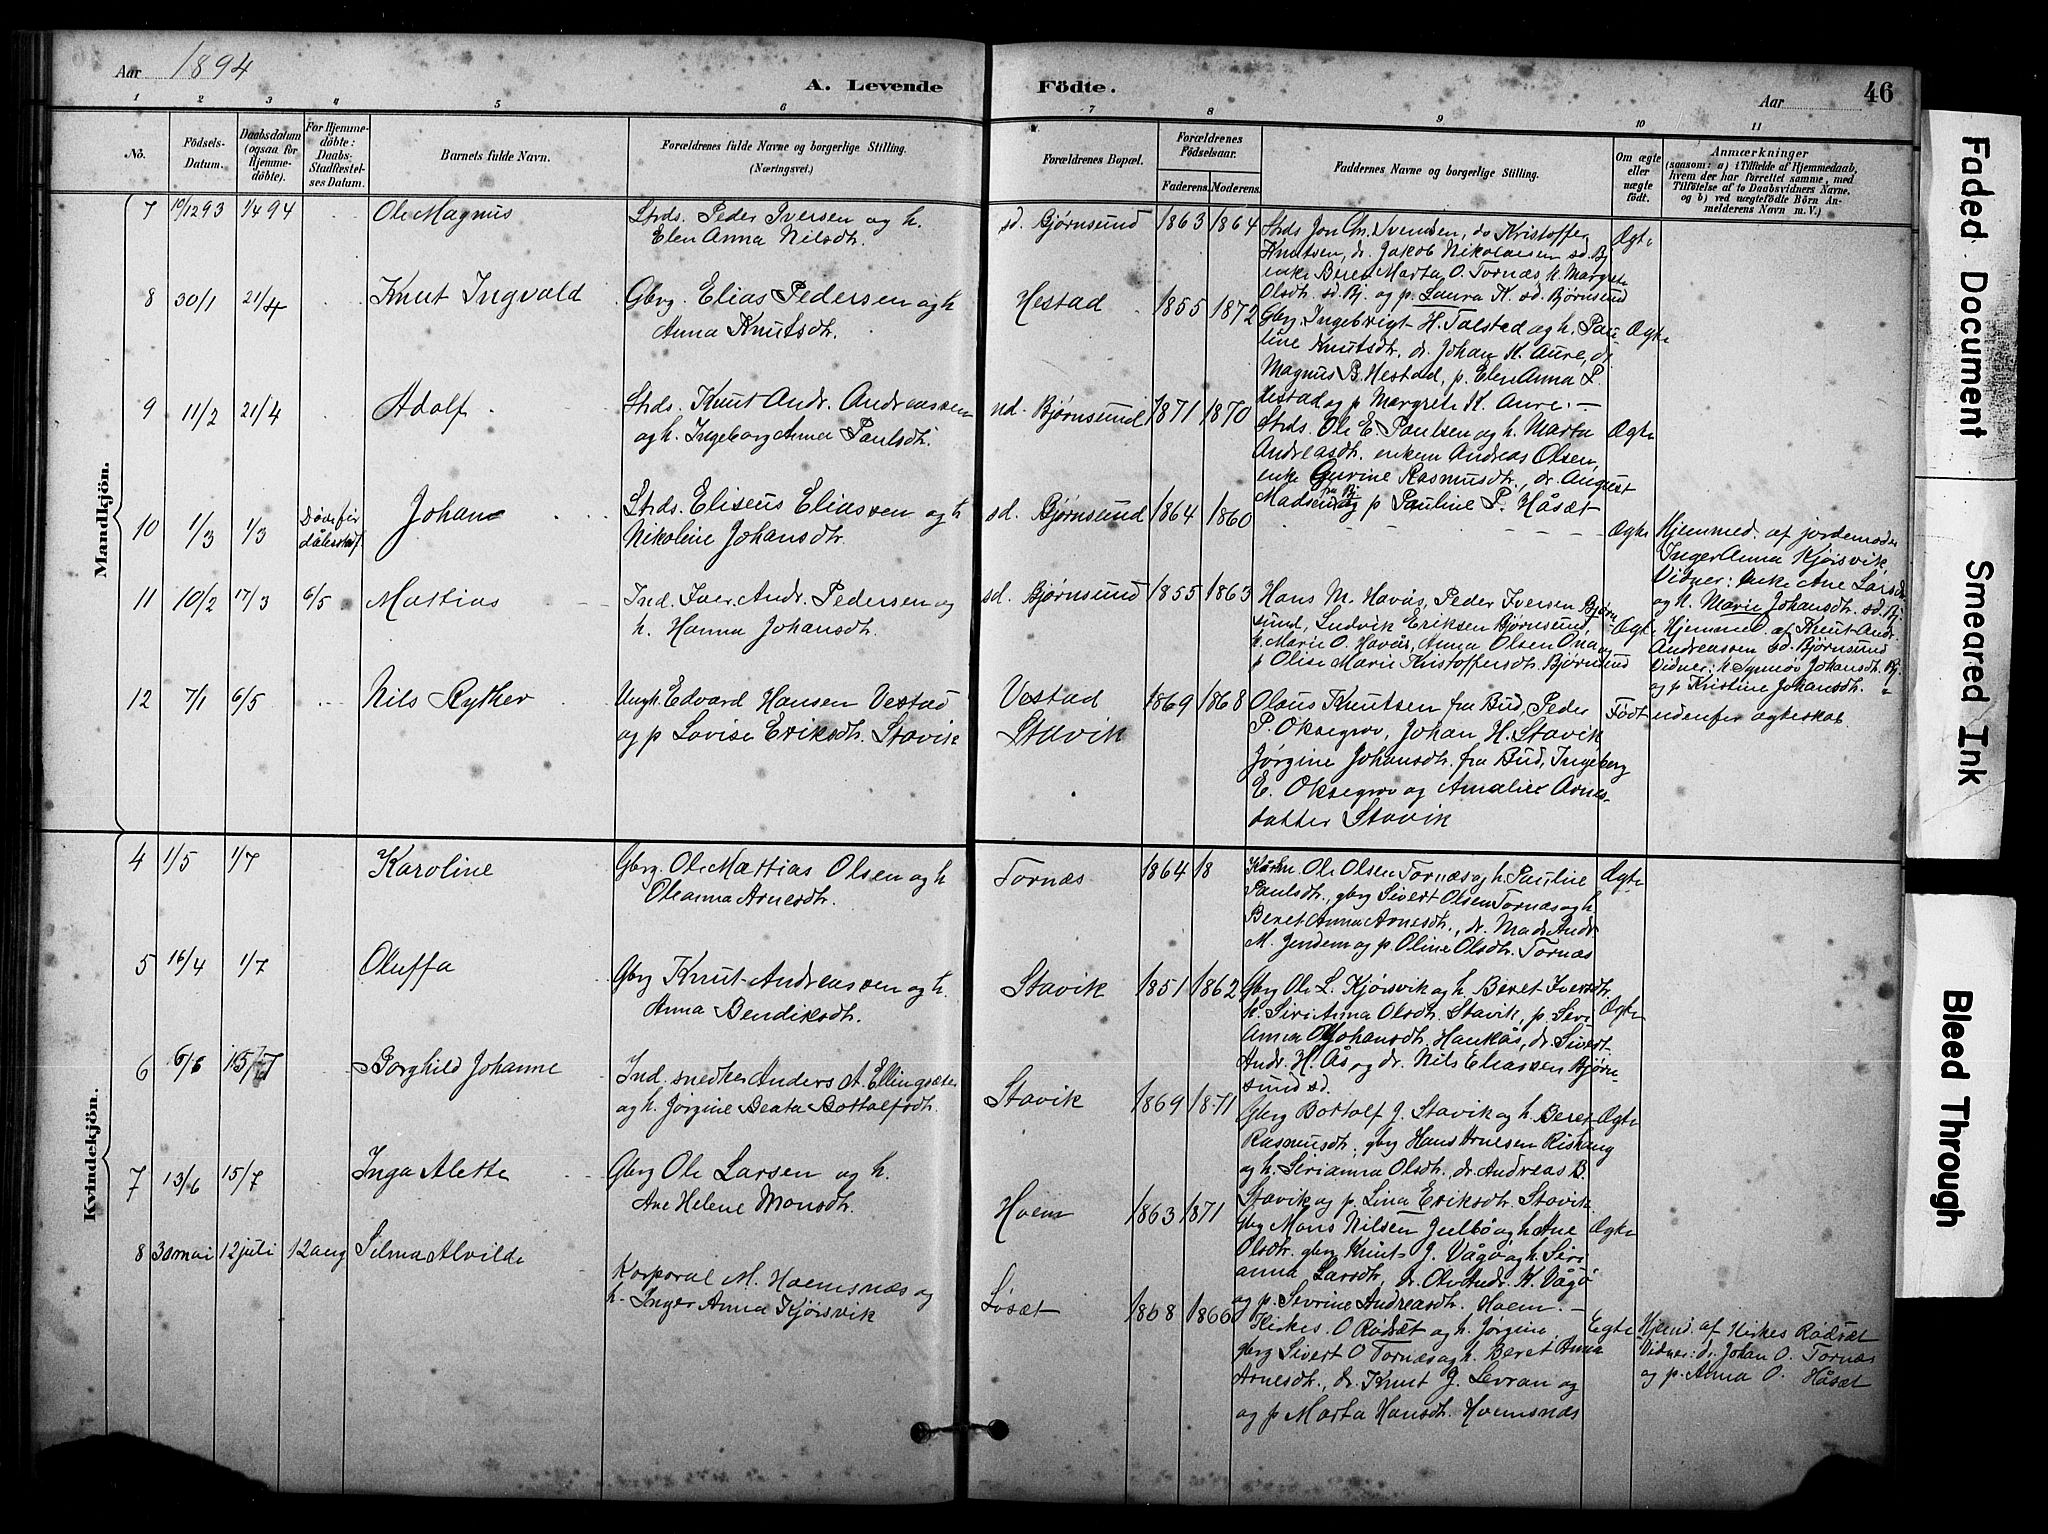 Aar 1894
A. Levende Födte.
Aar 46
1 2 3 4 5 6 7 8 9 10 11
No.
Födsels-Datum.
Daabsdatum (ogsaa for Hjemmedöbte).
For Hjemmedöbte: Daabs-Stadfæstelses Datum.
Barnets fulde Navn.
Forældrenes fulde Navne og borgerlige Stilling. (Næringsvei.)
Forældrenes Bopæl.
Forældrenes Födselsaar.
Faderens. Moderens.
Faddernes Navne og borgerlige Stilling.
Om ægte eller uægte födt.
Anmærkninger
(saasom: a) i Tilfælde af Hjemmedaab, hvem der har forrettet samme, med Tilföielse af to Daabsvidners Navne, og b) ved uægtefödte Börn Anmelderens Navn m. V.)
Mandkjön.
7 10/12 93 1/4 94 Ole Magnus
Strds. Peder Iversen og h.
Elen Anna Nilsdtr.
sd. Bjørnsund 1863 1864
Strds Jon Chr. Svendsen, do Kristoffer
Knutsen, dr. Jakob Nikolaisen sd. Bj
enke Beret Marta O. Tornæs h. Margrete
Olsdtr. sd. Bj. og p. Laura K. sd. Bjørnsund
Ægte
8 30/1 21/4 Knut Ingvald
Gbrg. Elias Pedersen og h
Anna Knutsdtr.
Hestad 1855 1872
Gbrg. Ingebrigt H. Talstad og h. Pau-
line Knutsdtr, dr. Johan K. Aure, dr
Magnus B. Hestad, p. Elen Anna P.
Hestad og p Margrete K. Aure. —
Ægte
9 11/2 21/4 Adolf
Strds. Knut Andr. Andreassen
og h. Ingeborg Anna Paulsdtr.
nd. Bjørnsund 1871 1870
Strds. Ole E. Paulsen og h. Marta
Andreasdtr. enkem Andreas Olsen,
enke Gurine Rasmusdtr., dr. August
Madsen fra Bj og p Pauline P. Håsæt
Ægte
10 1/3 1/3 Døde før dåbsstadf Johan
Strds. Eliseus Eliassen og h
Nikoline Johansdtr.
sd. Bjørnsund 1864 1860
Ægte
Hjemmed. af jordemoder
Inger Anna Kjørsvik
Vidner: enke Ane Larsdr.
og h. Marie Johansdtr. sd. Bj.
11 10/2 17/3 6/5 Mattias
Ind. Iver Andr. Pedersen og
h. Hanna Johansdtr.
sd. Bjørnsund 1855 1863
Hans M. Havås, Peder Iversen Bjørn-
sund, Ludvik Eriksen Bjørnsund,
h. Marie O. Havås, Anna Olsen Ona og
p Olise Marie Kristoffersdtr. Bjørnsund
Ægte
Hjemmed. af Knut Andr
Andreassen sd. Bjørnsund
Vidner: h Synnøv Johansdtr. Bj
og p Kristine Johansdtr. "
12 7/1 6/5 Nils Ryther
Ungk. Edvard Hansen Vestad
og p Lovise Eriksdtr. Stavik
Vestad
Stavik
1869 1868
Olaus Knutsen fra Bud, Peder
P. Oksegrov, Johan H. Stavik
Jørgine Johansdtr. fra Bud, Ingeborg
E. Oksegrov og Amalie Arnes-
datter Stavik
Født udenfor ægteskab.
Kvindekjön.
4 1/5 1/7 Karoline
Gbrg. Ole Mattias Olsen og h
Oleanna Arnesdtr.
Tornæs 1864 18
Kårm. Ole Olsen Tornæs og h. Pauline
Paulsdtr., gbrg Sivert Olsen Tornæs og h.
Beret Anna Arnesdtr., dr. Mads Andr
M. Jendem og p. Oline Olsdtr. Tornæs
Ægte
5 16/4 1/7 Oluffa
Gbrg Knut Andreassen og h.
Anna Bendiksdtr.
Stavik 1851 1862
Gbrg Ole L. Kjørsvik og h. Beret Iversdtr.
h. Siri Anna Olsdtr. Stavik, p. Siri
Anna Johansdtr. Haukås, dr. Sivert
Andr. H. Ås og dr. Nils Eliassen Bjørn-
sund sd.
Ægte
6 6/6 15/7 Borghild Johanne
Ind. snedker Anders A. Ellingsæter
og h. Jørgine Beata Bottolfsdtr.
Stavik 1869 1871
Gbrg Bottolf J. Stavik og h. Beret
Rasmusdtr., gbrg Hans Arnesen Rishaug
og h. Serianna Olsdtr. dr. Andreas B.
Stavik og p. Lina Eriksdtr. Stavik
Ægte
7 13/6 15/7 Inga Alette
Gbrg Ole Larsen og h.
Ane Helene Monsdtr.
Hoem 1863 1871
Gbrg Mons Nilsen Julbø og h Ane
Olsdtr. gbrg Knut J. Vågø og h. Seri-
anna Larsdtr, dr. Ole Andr. K. Vågø
og p. Severine Andreasdtr. Hoem. —
Ægte
8 30 mai 12 juli 12 aug Selma Alvilde
Korporal M. Hoemsnæs og
h. Inger Anna Kjørsvik
Løsæt 1868 1866
Kirkes. O Rødsæt og h. Jørgine
gbrg Sivert O Tornæs og h. Beret Anna
Arnesdtr., dr. Knut J. Levran og
og p Marta Hansdtr. Hoemsnæs
Egte
Hjemd. af Kirkes Rødsæt
Vidner: dr. Johan O. Tornæs
og p. Anna O. Håsæt
Faded Document
Smeared Ink
Bleed Through